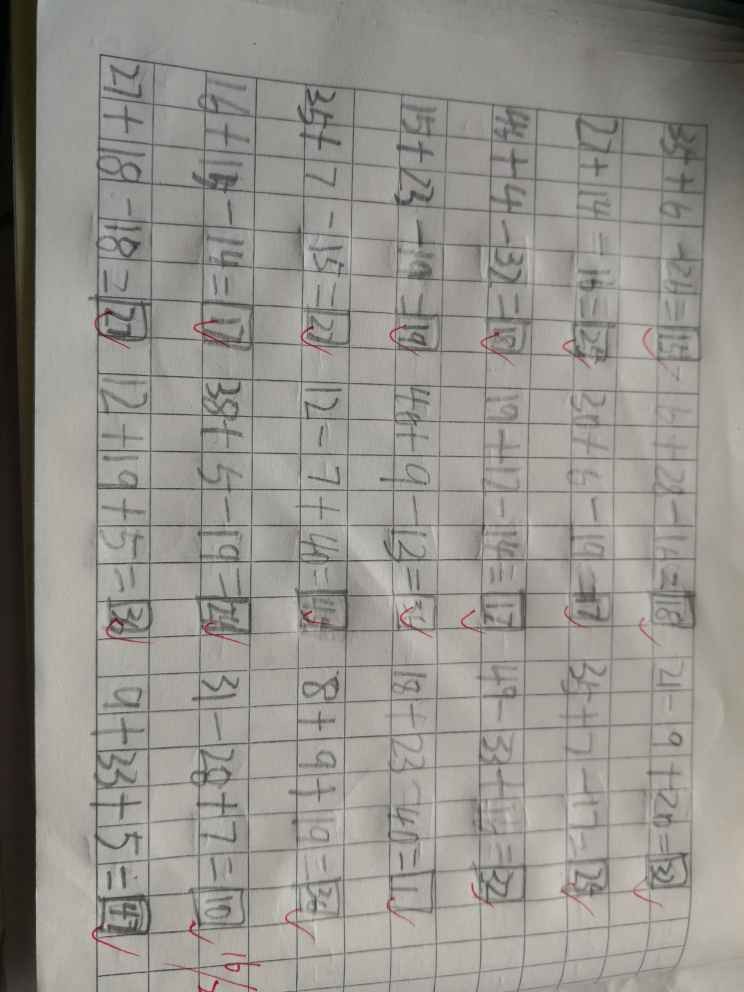 35+6-26=15 6+28-16=18 21-9+20=
27+14-16=25 30+6-19=17 35+7-17=25
+4-32=18 19+12-14=17 49-33+16=32
15+23-19=19 +9-12= 18+23-40=1
35+7-15=27 12-7+40= 8+9+19=36
16+15-14=17 38+5-19=24 31-28+7=10
27+18-18=27 12+19+5=36 9+33+5=47